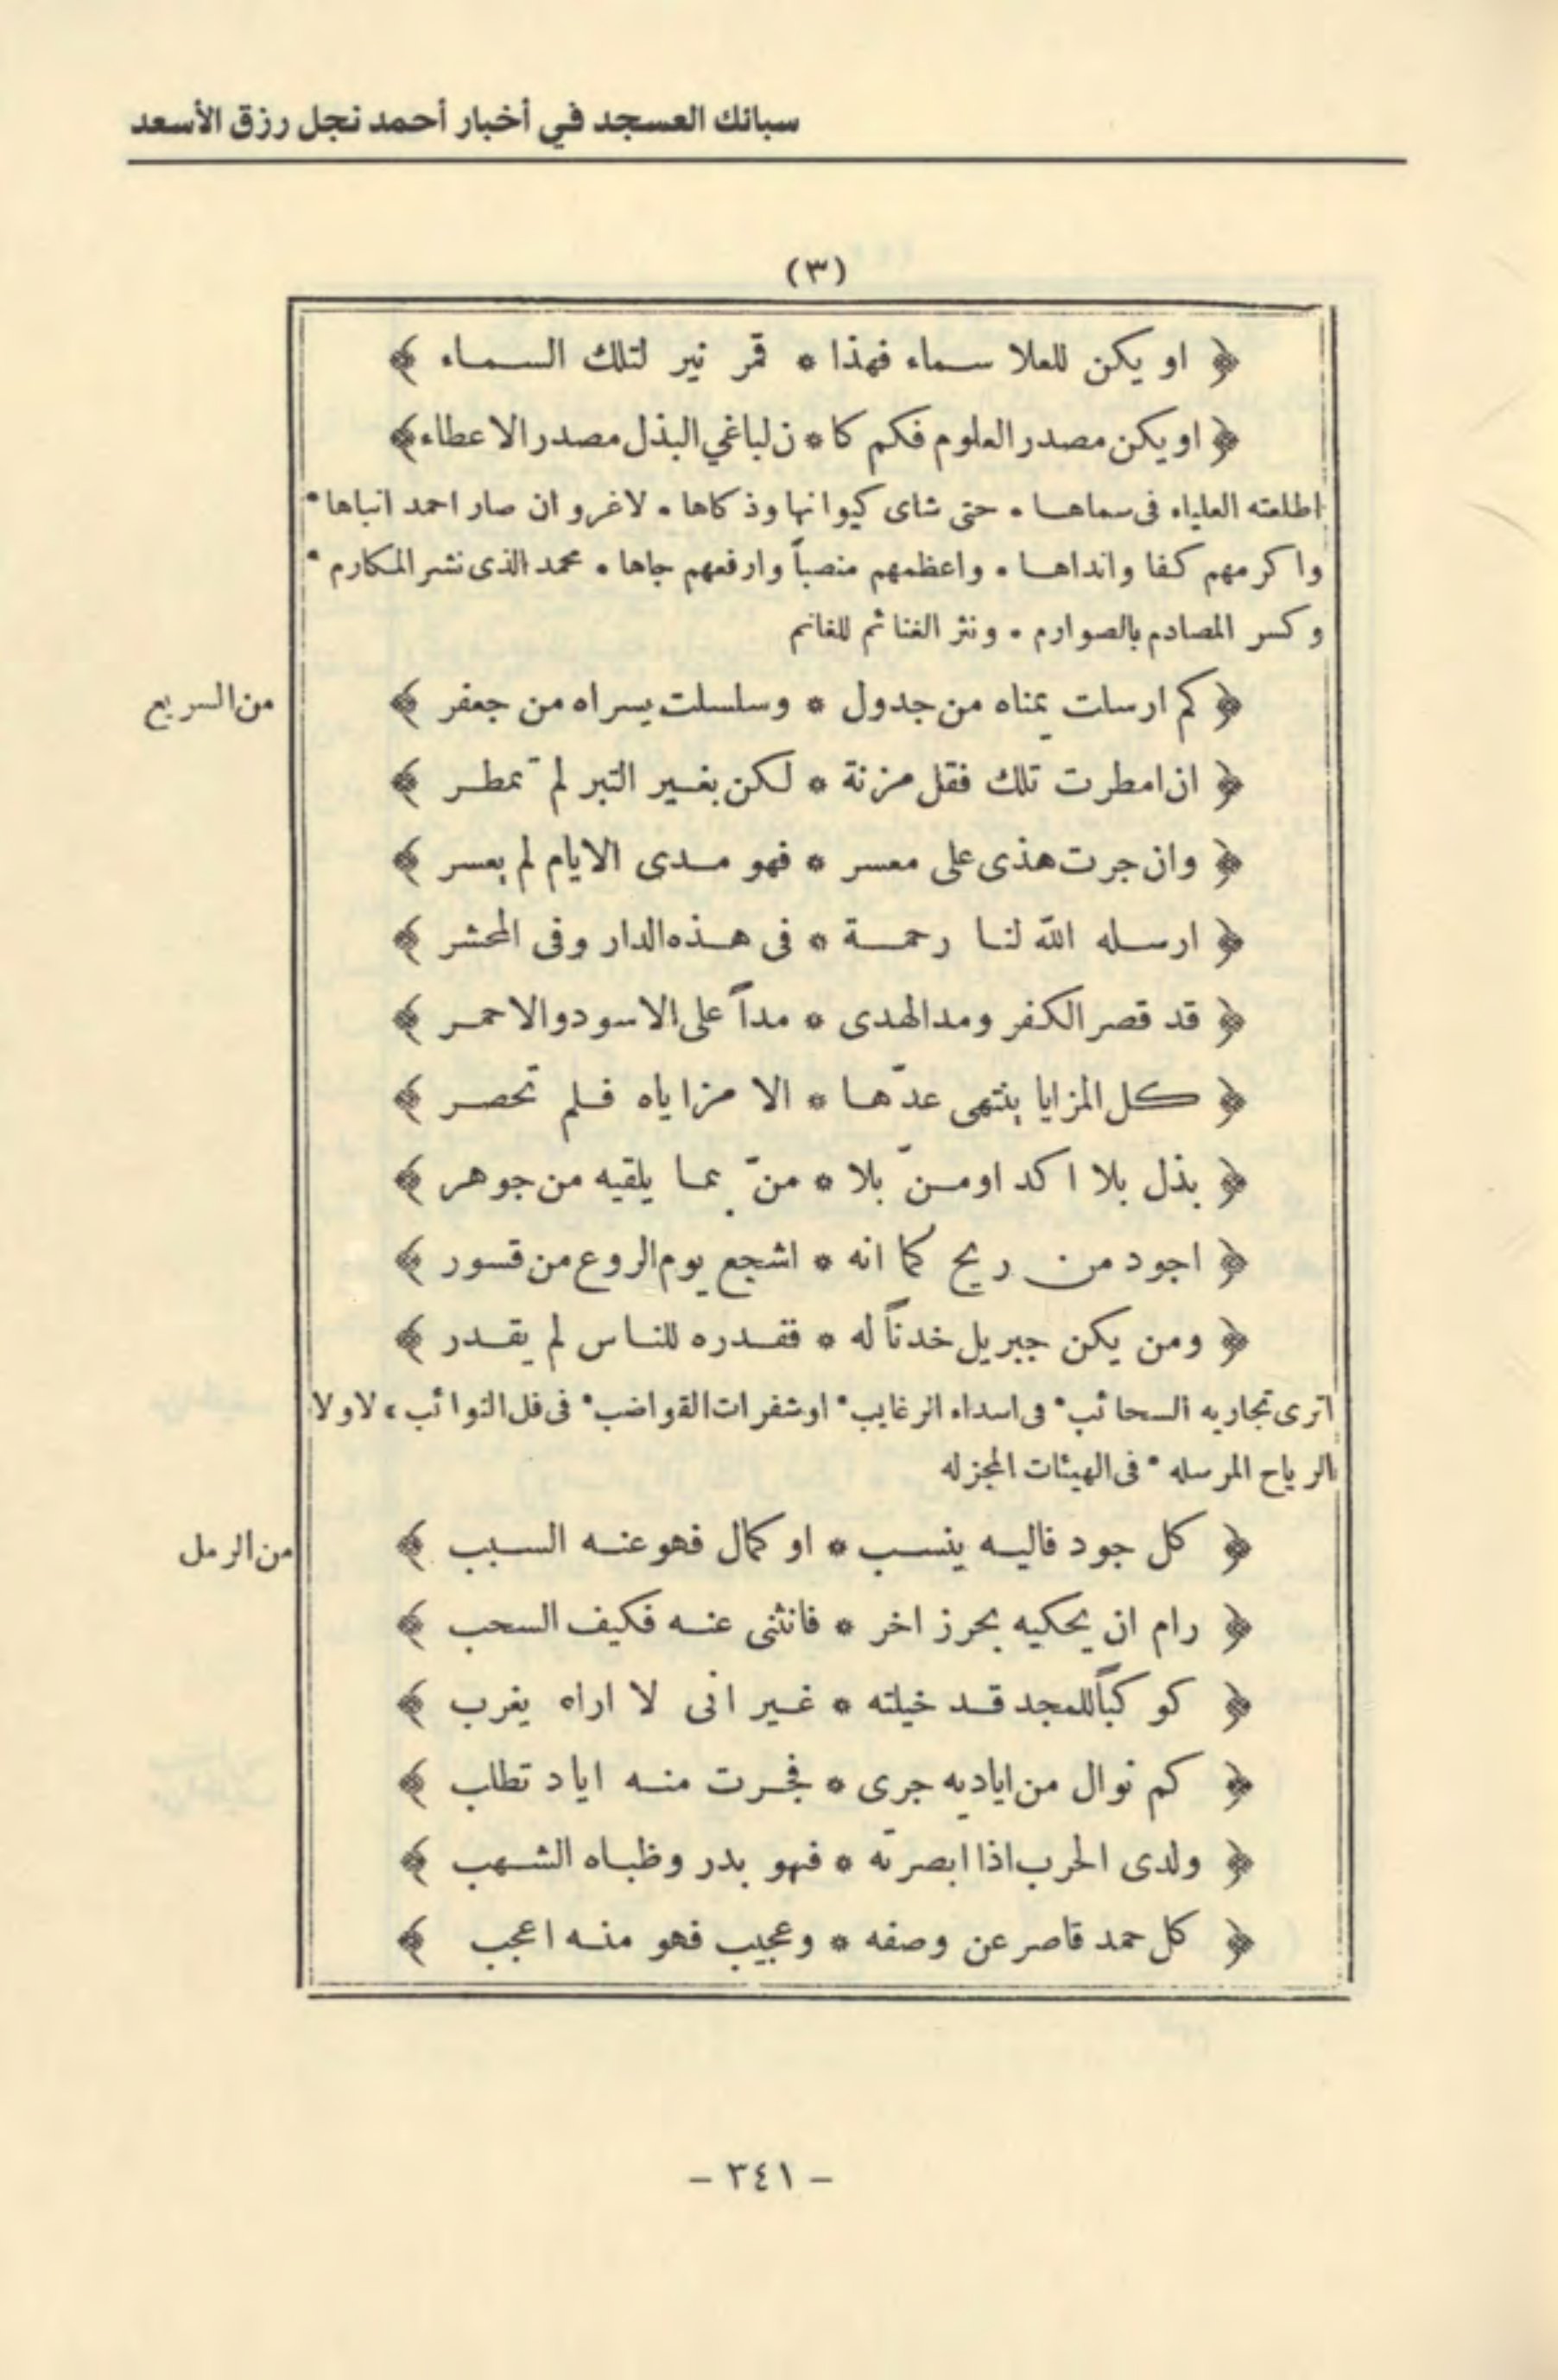 سبائك العسجد في أخبار أحمد نجل رزق الأسعد
(٣)
﴿ او يكن للعلا سماء فهذا * قمر نير لتلك السماء ﴾
﴿ او يكن مصدر العلوم فكم كا * ن لباغي البذل مصدر الاعطاء ﴾
اطلعته العلياء فى سماها * حتى شاى كيوانها وذكاها * لاغرو ان صار احمد انباها *
واكرمهم كفا وانداها * واعظمهم منصباً وارفعهم جاها * محمد الذى نشر المكارم *
وكسر المصادم بالصوارم * ونثر الغنائم للغانم
من السريع
﴿ كم ارسلت يمناه من جدول * وسلسلت يسراه من جعفر ﴾
﴿ ان امطرت تلك فقل مزنة * لكن بغير التبر لم تمطر ﴾
﴿ وان جرت هذى على معسر * فهو مدى الايام لم يعسر ﴾
﴿ ارسله الله لنا رحمة * فى هذه الدار وفى المحشر ﴾
﴿ قد قصر الكفر ومد الهدى * مداً على الاسود والاحمر ﴾
﴿ كل المزايا ينتهى عدّها * الا مزاياه فلم تحصر ﴾
﴿ بذل بلا اكد او منّ بلا * منّ بما يلقيه من جوهر ﴾
﴿ اجود من ريح كما انه * اشجع يوم الروع من قسور ﴾
﴿ ومن يكن جبريل خدناً له * فقدره للناس لم يقدر ﴾
اترى تجاريه السحائب * فى اسداء الرغايب * او شفرات القواضب * فى فل النوائب * لا ولا
الرياح المرسله * فى الهيئات المجزله
من الرمل
﴿ كل جود فاليه ينسب * او كمال فهو عنه السبب ﴾
﴿ رام ان يحكيه بحر زاخر * فانثنى عنه فكيف السحب ﴾
﴿ كوكباً للمجد قد خيلته * غير انى لا اراه يغرب ﴾
﴿ كم نوال من اياديه جرى * فجرت منه اياد تطلب ﴾
﴿ ولدى الحرب اذا ابصرته * فهو بدر وظباه الشهب ﴾
﴿ كل حمد قاصر عن وصفه * وعجيب فهو منه اعجب ﴾
- ٣٤١ -